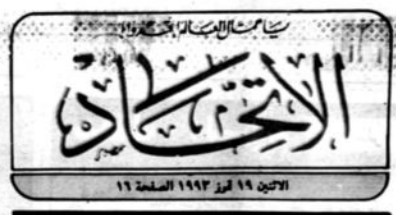 يا عمال العالم اتحدوا
الاتحاد
الاثنين ١٩ تموز ١٩٩٣ الصفحة ١٦